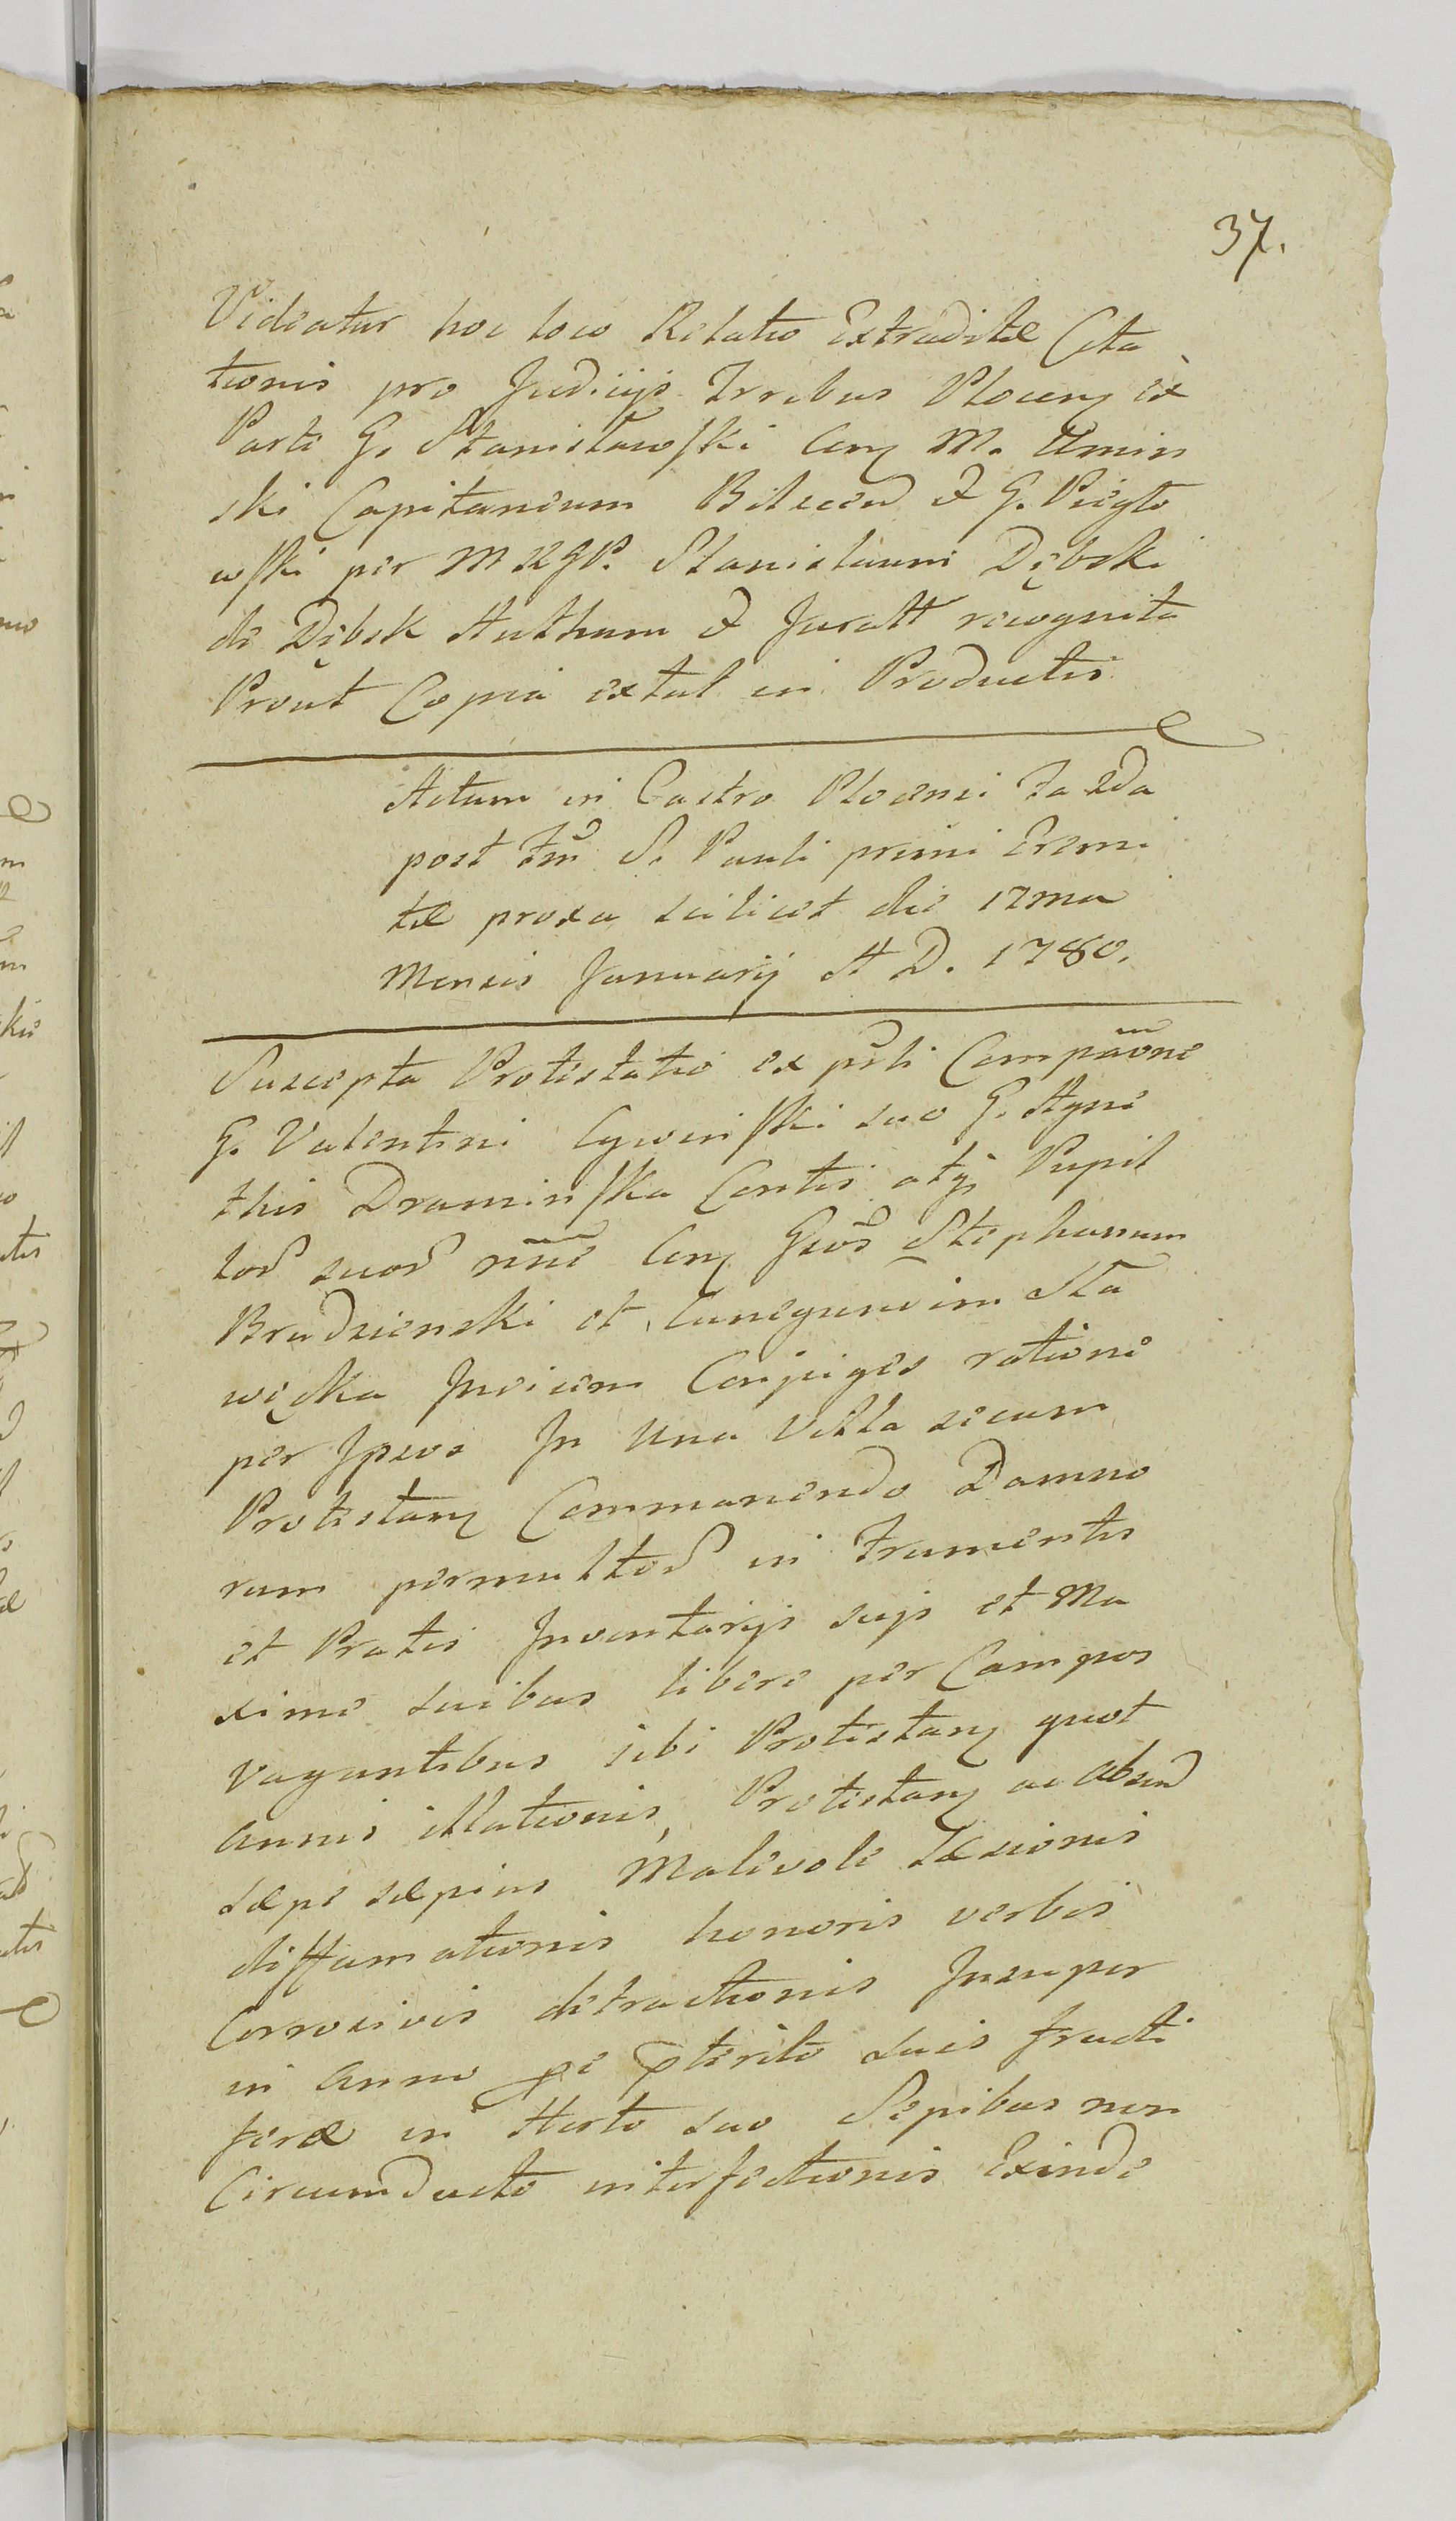 37.
Videatur hoc loco Relatio Extraditæ Cita
tionis pro Judicijs Trribus Plocen ex
Parte G. Stanisławski Con M. Umin
ski Capitaneum Bilscen & G. Piegło
wski per MRGP. Stanislaum Dębski
de Dębsk Authum & Juratt recognita
Prout Copia extat in Productis
Actum in Castro Plocensi Fa 2da
post Fm S. Pauli primi Eremi
tæ proxa scilicet die 17ma
Mensis Januarij A D. 1780.
Suscepta Protestatio ex psli Compãone
G. Valentini Cywinski suo G. Agne
this Draminska Contis atq Pupil
lor suor nne Con Gros Stephanum
Brudzienski et Cunegundim Sta
węcka Invicem Conjuges ratione
per Ipsos In Una Villa secum
Protestan Commanendo Damno
rum permultor in Frumentis
et Pratis Inventarijs suis et Ma
xime suibus libere per Campos
vagantibus sibi Protestan quot
annis illationis, Protestan ac absend
sæpe sæpius Malevole Læsionis
diffamationis honoris verbis
Corrosivis detractionis Insuper
in Anno pe pterito suis fructi
feræ in Horto suo Sepibus non
Circumducto interfectionis Exinde